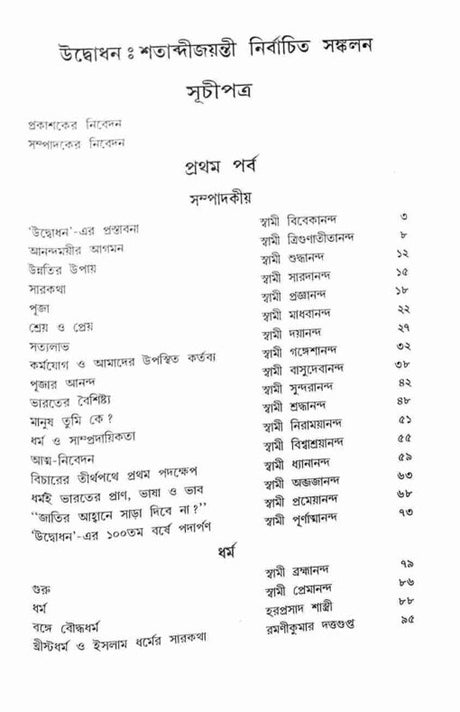 উদ্বোধন : শতাব্দীজয়ন্তী নির্বাচিত সঙ্কলন
সূচীপত্র
প্রকাশকের নিবেদন
সম্পাদকের নিবেদন
প্রথম পর্ব
সম্পাদকীয়
'উদ্বোধন'-এর প্রস্তাবনা স্বামী বিবেকানন্দ ৩
আনন্দময়ীর আগমন স্বামী ত্রিগুণাতীতানন্দ ৮
উন্নতির উপায় স্বামী শুদ্ধানন্দ ১২
সারকথা স্বামী সারদানন্দ ১৫
পূজা স্বামী প্রজ্ঞানন্দ ১৮
শ্রেয় ও প্রেয় স্বামী মাধবানন্দ ২২
সত্যলাভ স্বামী দয়ানন্দ ২৭
কর্মযোগ ও আমাদের উপস্থিত কর্তব্য স্বামী গঙ্গেশানন্দ ৩২
পূজার আনন্দ স্বামী বাসুদেবানন্দ ৩৮
ভারতের বৈশিষ্ট্য স্বামী সুন্দরানন্দ ৪২
মানুষ তুমি কে? স্বামী শ্রদ্ধানন্দ ৪৮
ধর্ম ও সাম্প্রদায়িকতা স্বামী নিরাময়ানন্দ ৫১
আত্ম-নিবেদন স্বামী বিশ্বাশ্রয়ানন্দ ৫৫
বিচারের তীর্থপথে প্রথম পদক্ষেপ স্বামী ধ্যানানন্দ ৫৯
ধর্মই ভারতের প্রাণ, ভাষা ও ভাব স্বামী অব্জজানন্দ ৬৩
"জাতির আহ্বানে সাড়া দিবে না?" স্বামী প্রমেয়ানন্দ ৬৮
'উদ্বোধন'-এর ১০০তম বর্ষে পদার্পণ স্বামী পূর্ণাত্মানন্দ ৭৩
ধর্ম
গুরু স্বামী ব্রহ্মানন্দ ৭৯
ধর্ম স্বামী প্রেমানন্দ ৮৬
বঙ্গে বৌদ্ধধর্ম হরপ্রসাদ শাস্ত্রী ৮৮
খ্রীস্টধর্ম ও ইসলাম ধর্মের সারকথা রমণীকুমার দত্তগুপ্ত ৯৫